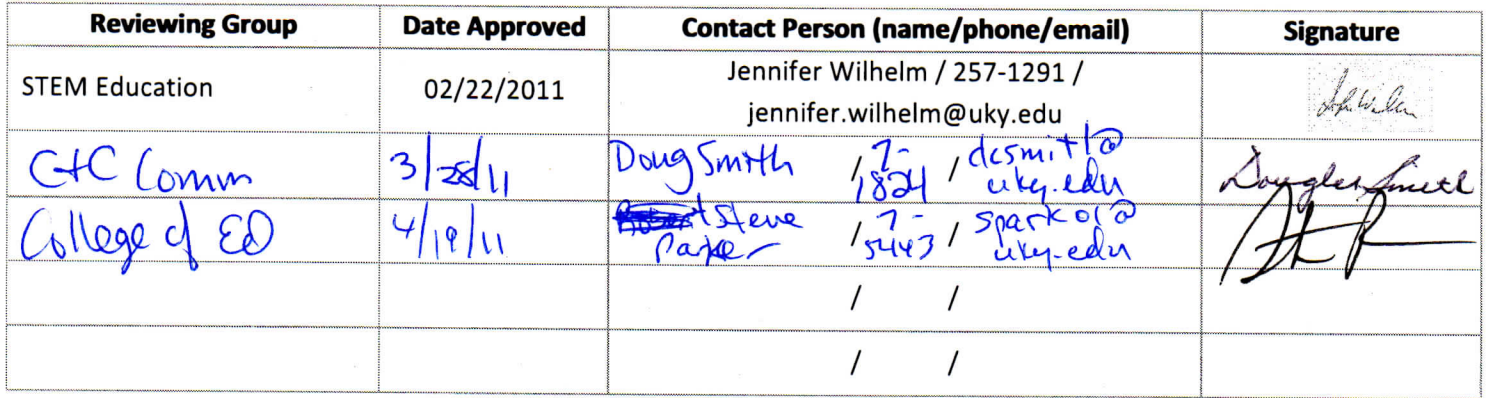 Reviewing Group Date Approved Contact Person (name/phone/email) Signature
STEM Education 02/22/2011 Jennifer Wilhelm / 257-1291 /
jennifer.wilhelm@uky.edu
C+C Comm 3/28/11 Doug Smith / 7-1824 / dcsmit1@uky.edu Douglas Smith
College of ED 4/19/11 Steve Parker / 7-5443 / spark01@uky.edu
/ /
/ /